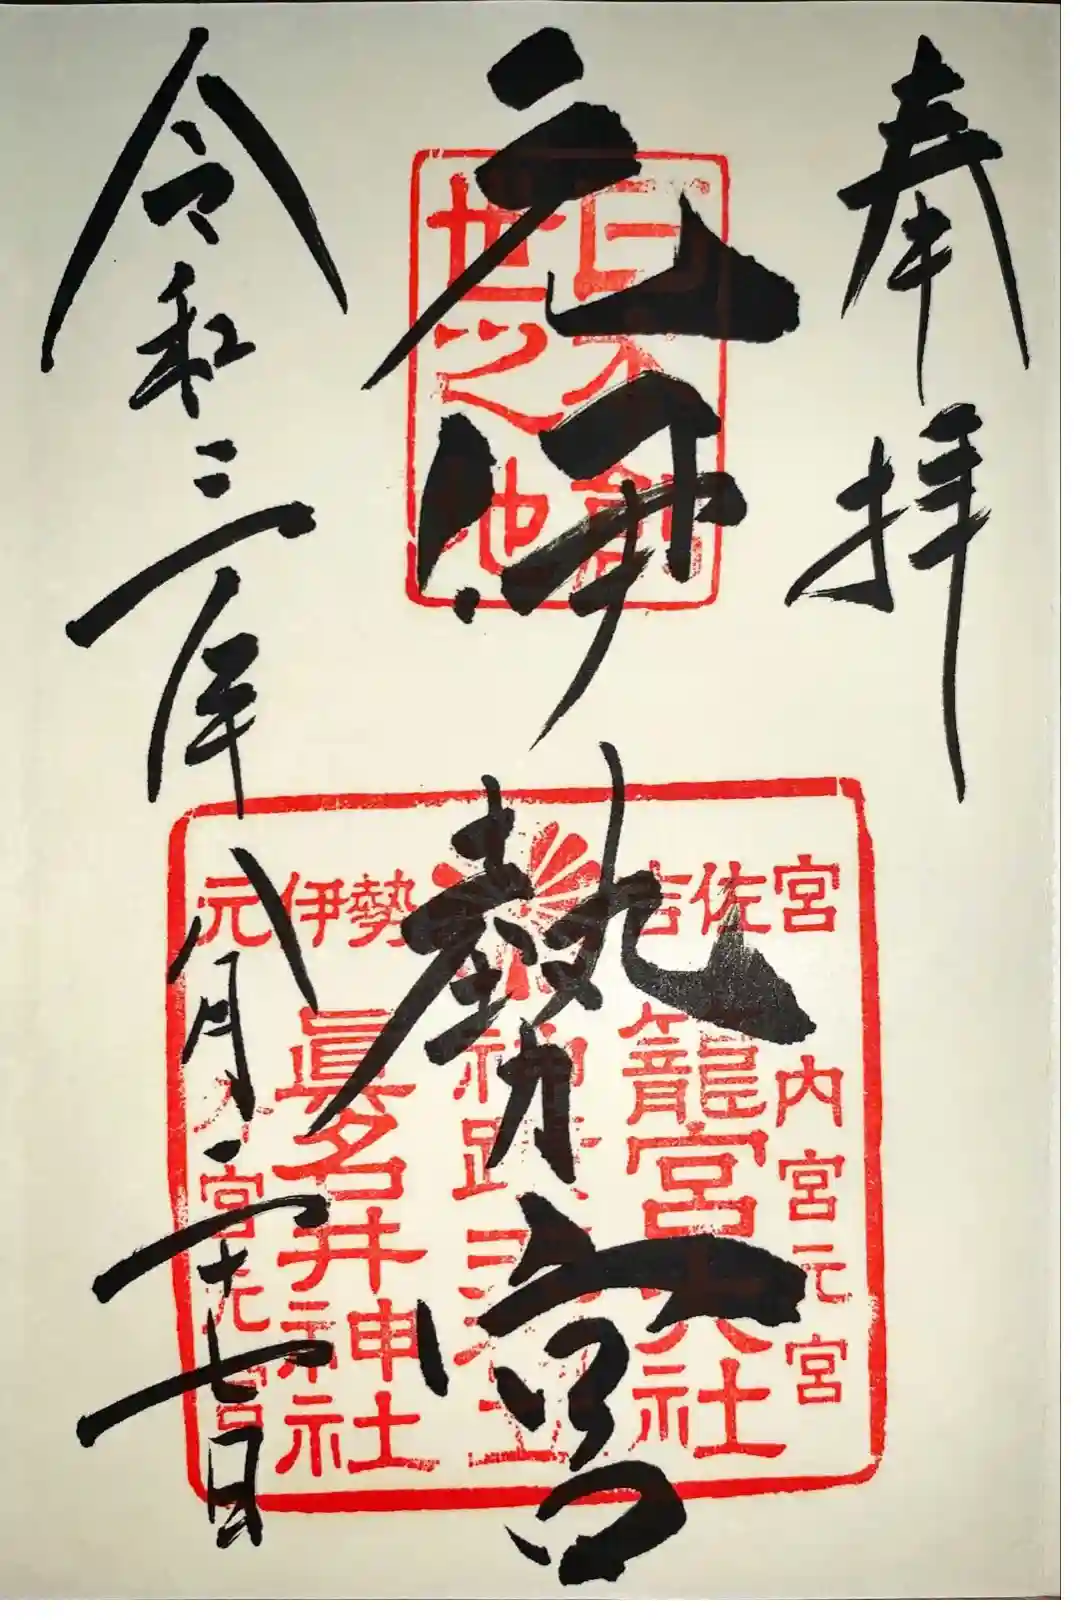 奉拝
元伊勢宮
令和三年八月二十七日
日本
世之
元伊勢
吉佐宮
内宮元宮
籠宮大社
神蹟
眞名井神社
宮元宮